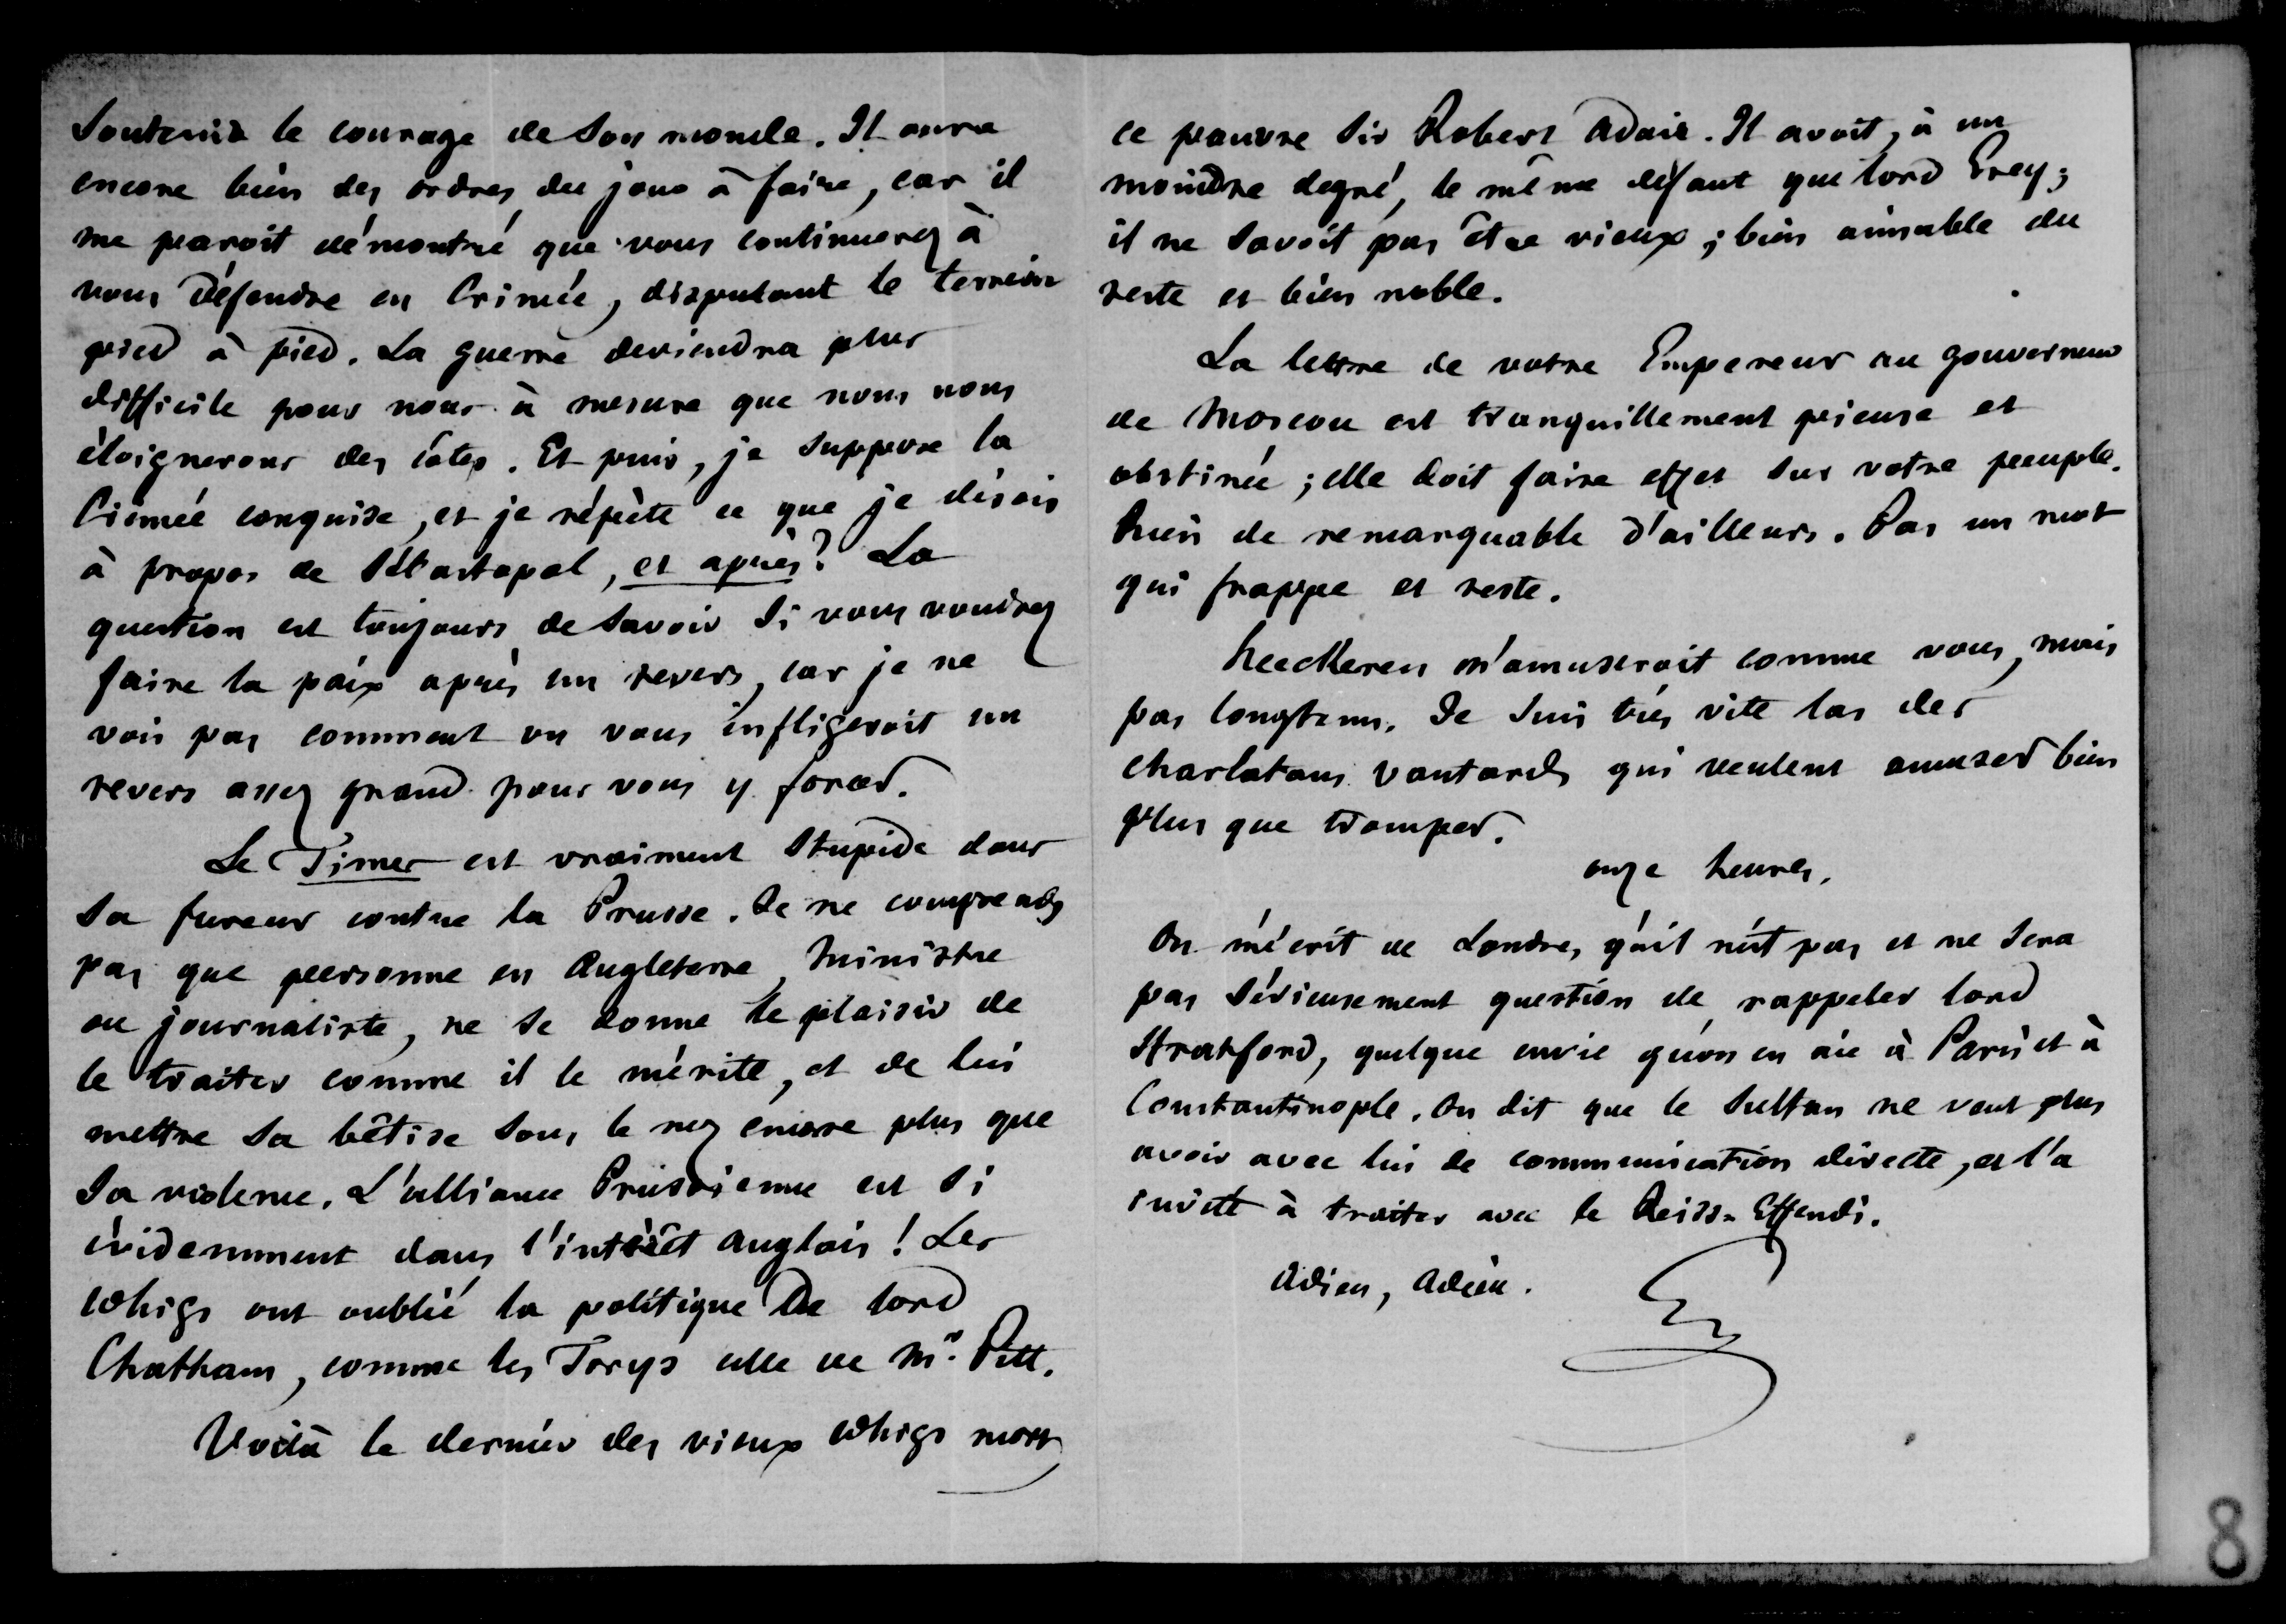 soutenir le courage de son monde. Il aura
encore bien des ordres du jour à faire, car il
me paroit démontré que vous continuerez à
vous défendre en Crimée, disputant le terrein
pied à pied. La guerre deviendra plus
difficile pour nous à mesure que nous nous
éloignerons des côtes. Et puis, je suppose la
Crimée conquise, et je répète ce que je disois
à propos de Sébastopol, et après? La
question est toujours de savoir si vous voudrez
faire la paix après un revers, car je ne
vois pas comment on vous infligeroit un
revers assez grand pour vous y forcer.
Le Times est vraiment stupide dans
sa fureur contre la Prusse. Je ne comprends
pas que personne en Angleterre, ministre
ou journaliste, ne se donne le plaisir de
le traiter comme il le mérite, et de lui
mettre sa bêtise sous le nez encore plus que
sa violence. L'alliance Prussienne est si
évidemment dans l'intérêt anglois! Les
Whigs ont oublié la politique de lord
Chatham, comme les Torys celle de Mr. Pitt.
Voilà le dernier des vieux Whigs mort,
ce pauvre Sir Robert Adair. Il avoit, à un
moindre degré, le même défaut que lord Grey;
il ne savoit pas être vieux; bien aimable du
reste et bien noble.
La lettre de votre Empereur au gouverneur
de Moscou est tranquillement pieuse et
obstinée; elle doit faire effet sur votre peuple.
Rien de remarquable d'ailleurs. Pas un mot
qui frappe et reste.
Heeckeren m'amuseroit comme vous, mais
pas longtems. Je suis très vite las des
charlatans vantards qui veulent amuser bien
plus que tromper.
onze heures.
On m'écrit de Londres qu'il n'est pas et ne sera
pas sérieusement question de rappeler lord
Stratford, quelque envie qu'on en aie à Paris et à
Constantinople. On dit que le Sultan ne veut plus
avoir avec lui de communication directe, et l'a
invité à traiter avec le Reiss-Effendi.
Adieu, Adieu.
8